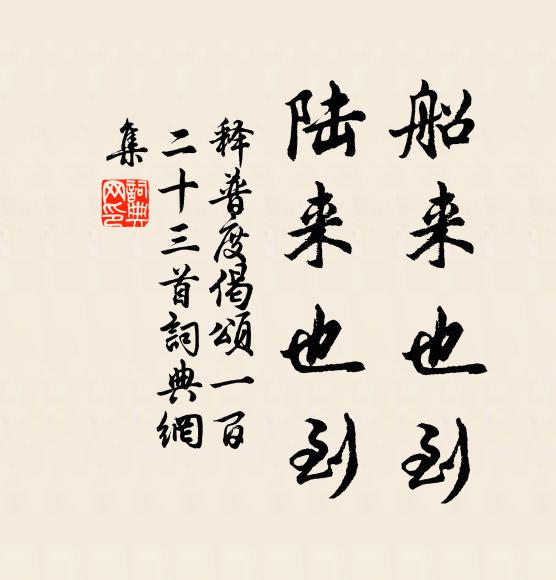 船来也到
陆来也到
释普度偈颂一百
二十三首詞典網
集
詞典网印